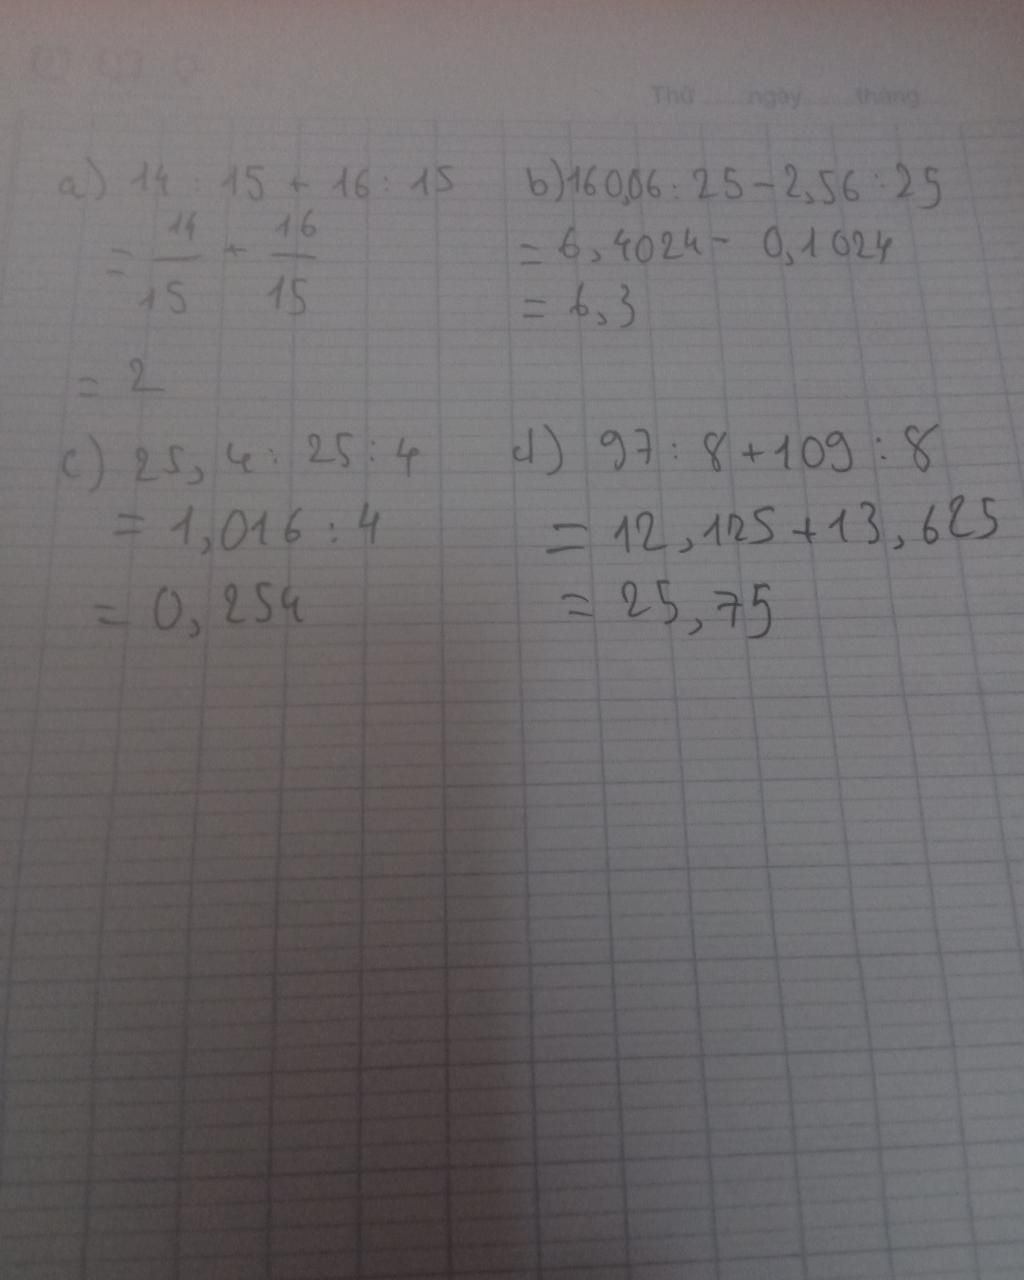 Thứ ngày tháng
a) 14 : 15 + 16 : 15
= 14/15 + 16/15
= 2
b) 160,06 : 25 - 2,56 : 25
= 6,4024 - 0,1024
= 6,3
c) 25,4 : 25 : 4
= 1,016 : 4
= 0,254
d) 97 : 8 + 109 : 8
= 12,125 + 13,625
= 25,75